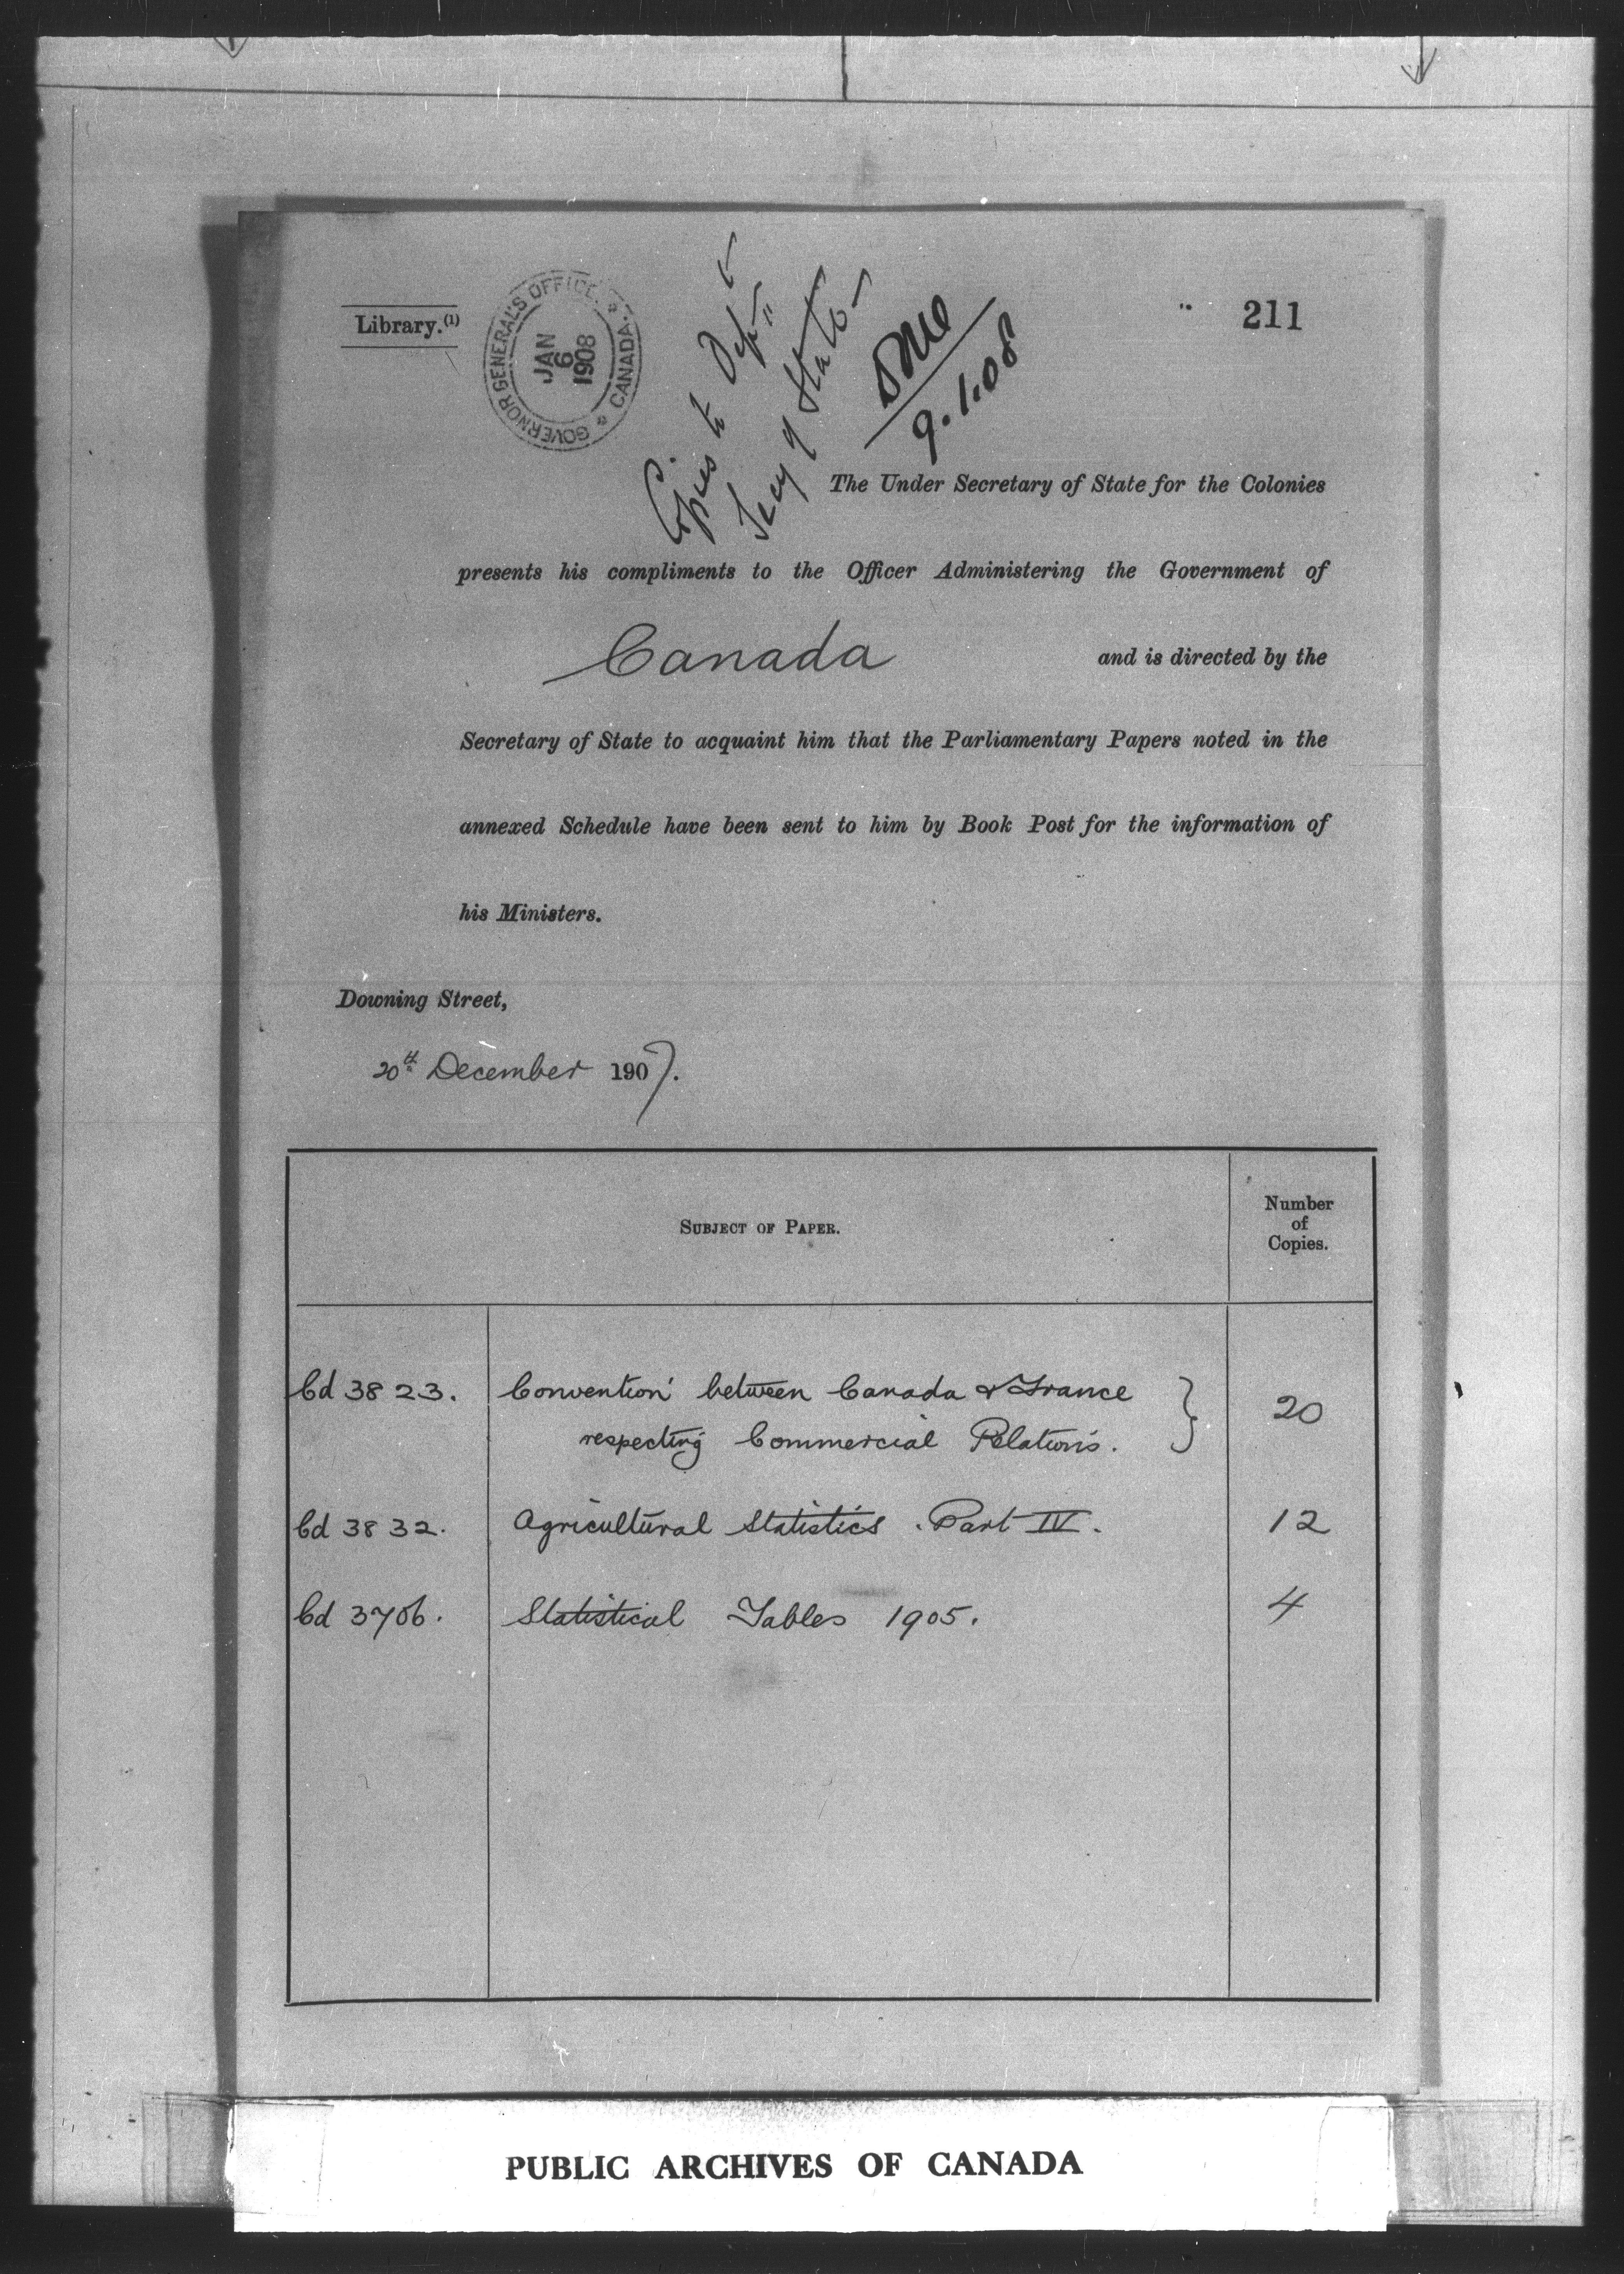 Library.(1)
GOVERNOR GENERAL'S OFFICE. * CANADA. *
JAN
6
1908
Copies to Dept
Secy of State
Done
9.1.08
211
The Under Secretary of State for the Colonies
presents his compliments to the Officer Administering the Government of
Canada and is directed by the
Secretary of State to acquaint him that the Parliamentary Papers noted in the
annexed Schedule have been sent to him by Book Post for the information of
his Ministers.
Downing Street,
20th December 1907.
SUBJECT OF PAPER.
Number
of
Copies.
Cd 3823. Convention between Canada & France
respecting Commercial Relations. } 20
Cd 3832. Agricultural Statistics. Part IV. 12
Cd 3706. Statistical Tables 1905. 4
PUBLIC ARCHIVES OF CANADA